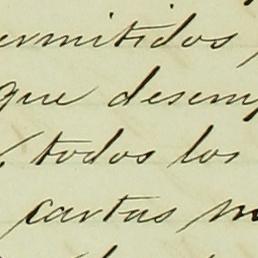 ermitidos
que desem
todos los
cartas m